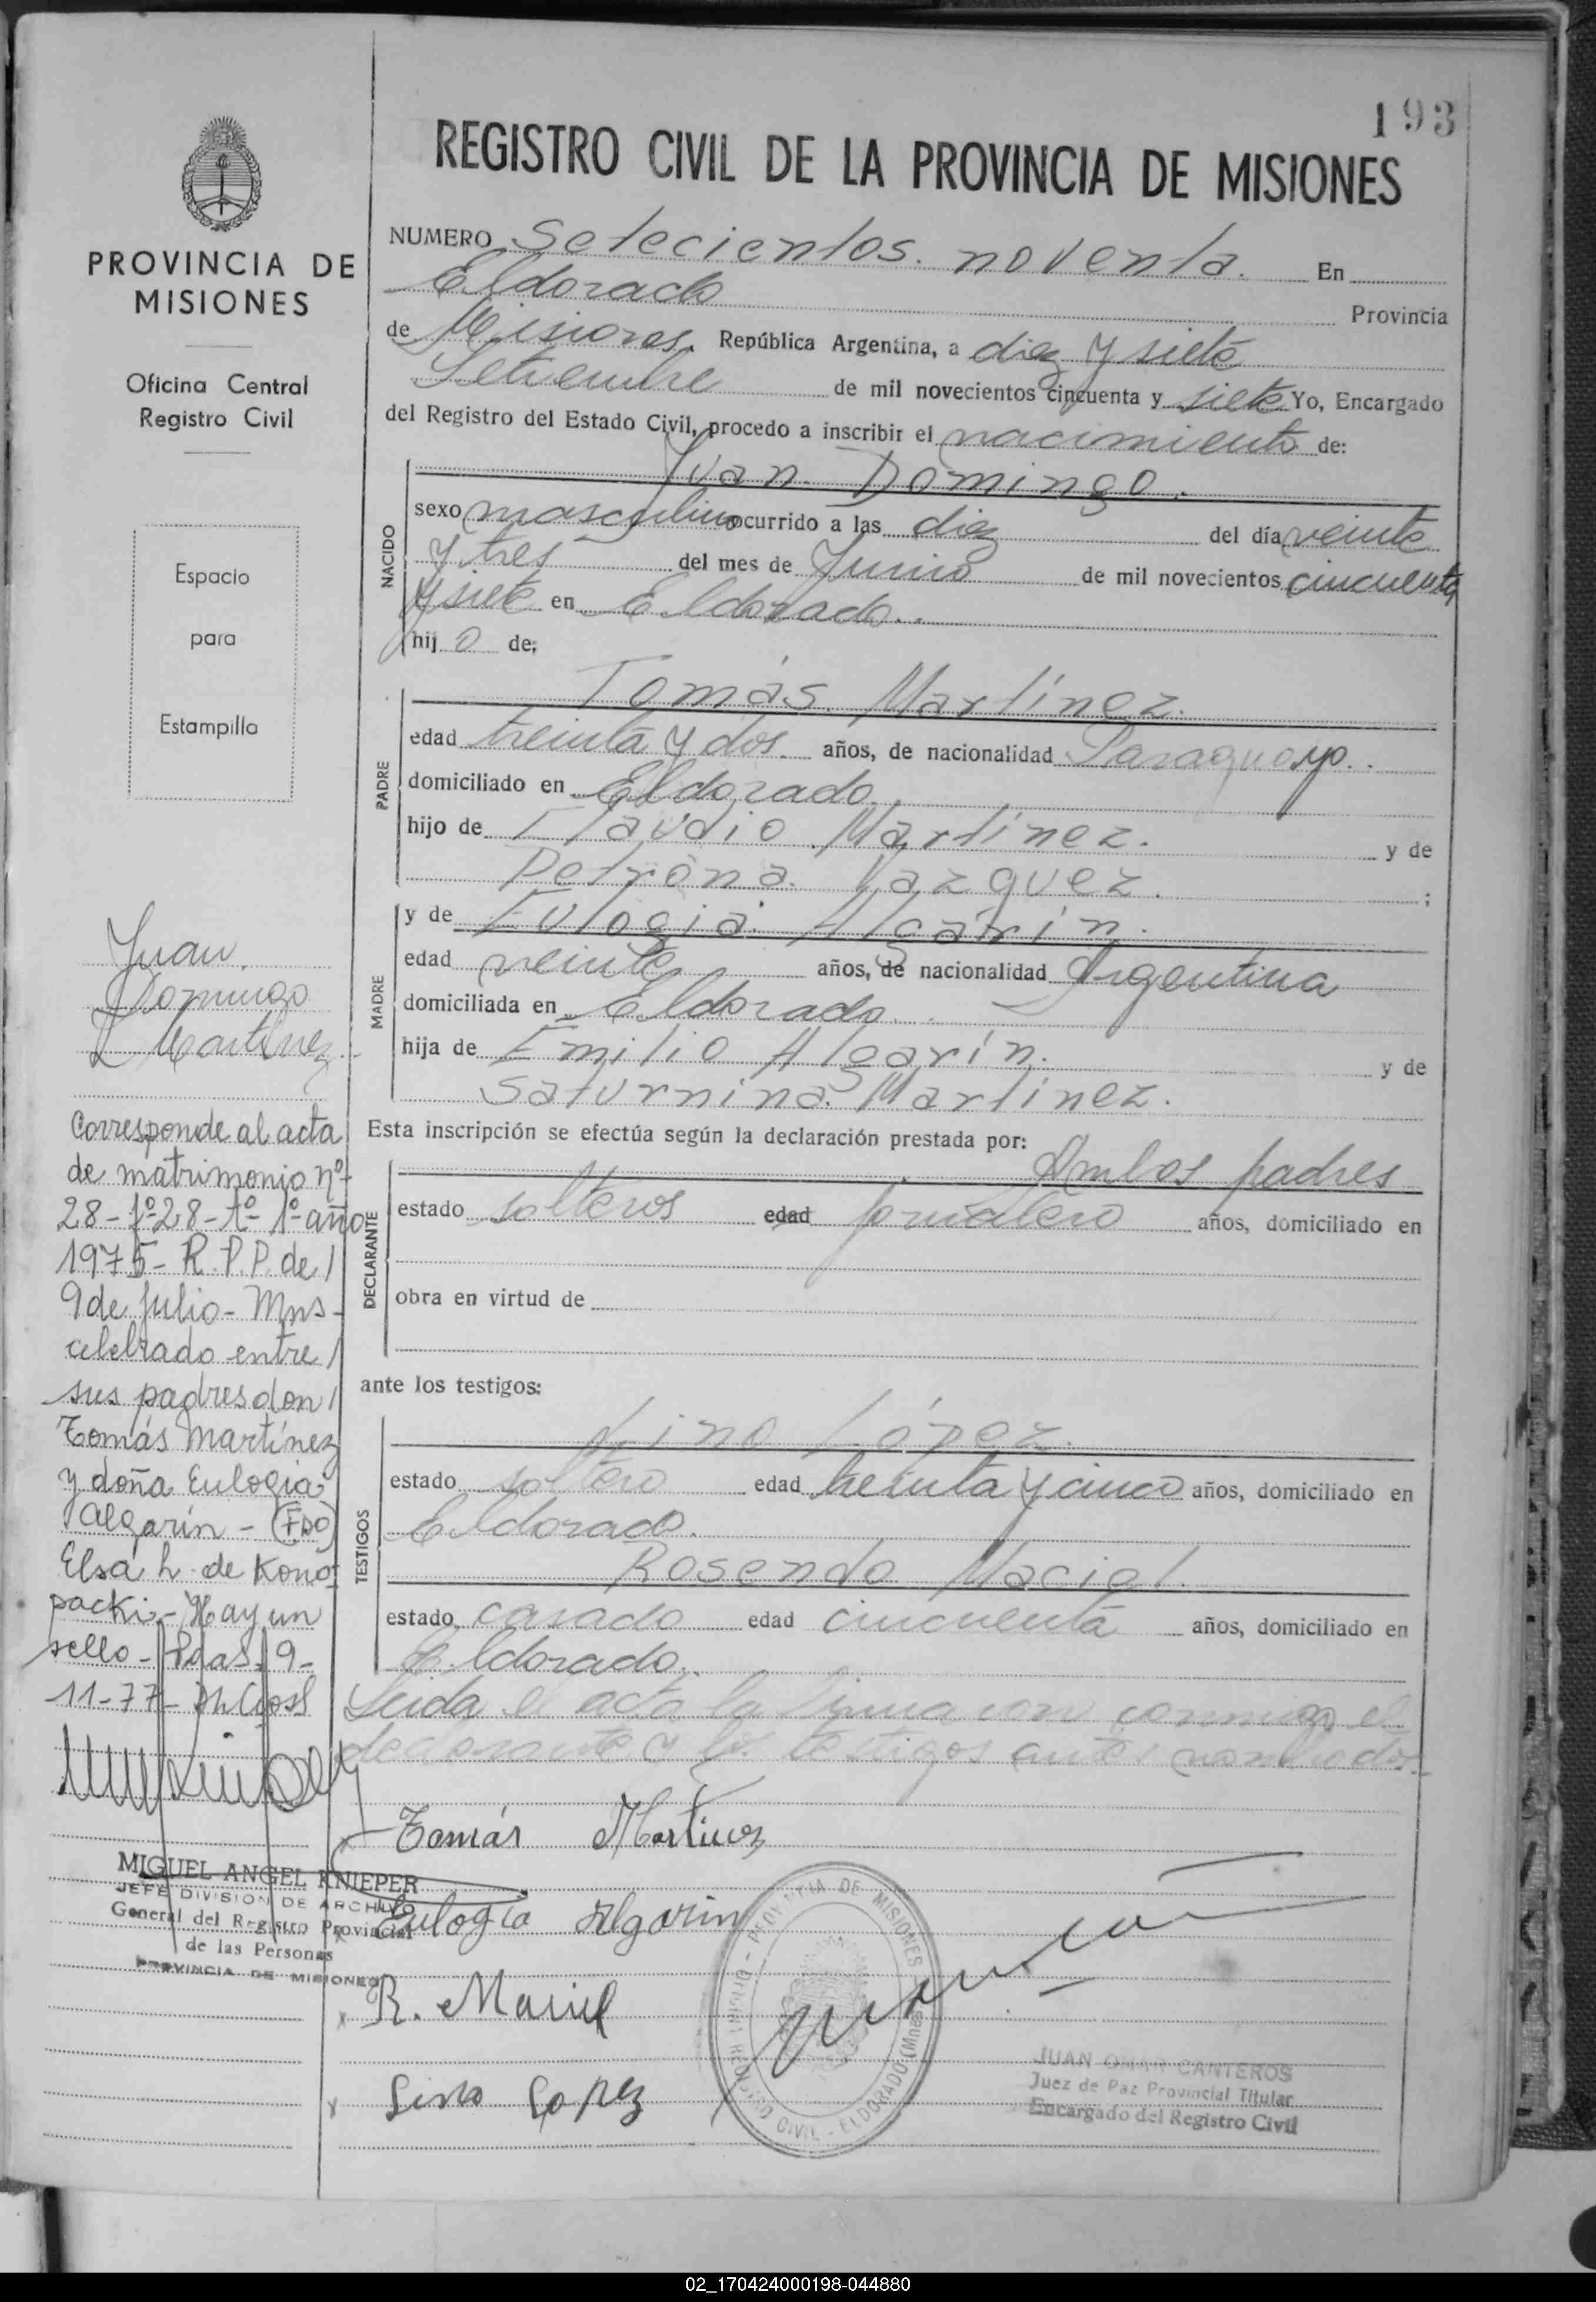 193
REGISTRO CIVIL DE LA PROVINCIA DE MISIONES
PROVINCIA DE
MISIONES
Oficina Central
Registro Civil
Espacio
para
Estampilla
NUMERO Setecientos noventa. En
Eldorado Provincia
de Misiones, República Argentina, a diez y siete
Setiembre de mil novecientos cincuenta y siete Yo, Encargado
del Registro del Estado Civil, procedo a inscribir el nacimiento de:
NACIDO
Juan Domingo.
sexo masculino ocurrido a las diez del día veinte
y tres del mes de Junio de mil novecientos cincuenta
y siete en Eldorado..
hijo de:
PADRE
Tomás Martínez.
edad treinta y dos años, de nacionalidad Paraguayo..
domiciliado en Eldorado.
hijo de Claudio Martínez. y de
Petrona Vazquez. ;
MADRE
y de Eulogia Algarín.
edad veinte años, de nacionalidad Argentina
domiciliada en Eldorado..
hija de Emilio Algarín. y de
Saturnina Martínez.
Esta inscripción se efectúa según la declaración prestada por:
DECLARANTE
Ambos padres
estado solteros edad jornalero años, domiciliado en
obra en virtud de
ante los testigos:
TESTIGOS
Lino López.
estado soltero edad treinta y cinco años, domiciliado en
Eldorado.
Rosendo Maciel.
estado casado edad cincuenta años, domiciliado en
Eldorado..
Leida el acta la firman con conmigo el
declarante y los testigos antes nombrados.
Tomás Martinez
Eulogia Algarin
R. Maciel
Lino Lopez
PROVINCIA DE MISIONES
REGISTRO CIVIL - ELDORADO (Mnes
JUAN OMAR CANTEROS
Juez de Paz Provincial Titular
Encargado del Registro Civil
Juan
Domingo
Martínez
Corresponde al acta
de matrimonio nº
28-fº28-tº-1º-año
1975- R.P.P. de
9 de Julio- Mns-
celebrado entre
sus padres don
Tomás Martínez
y doña Eulogia
Algarín - (FDO)
Elsa h. de Kono
packi.- Hay un
sello - Pdas. 9-
11-77-
MIGUEL ANGEL KNIEPER
JEFE DIVISION DE ARCHIVO
General del Registro Provincial
de las Personas
PROVINCIA DE MISIONES
02_170424000198-044880